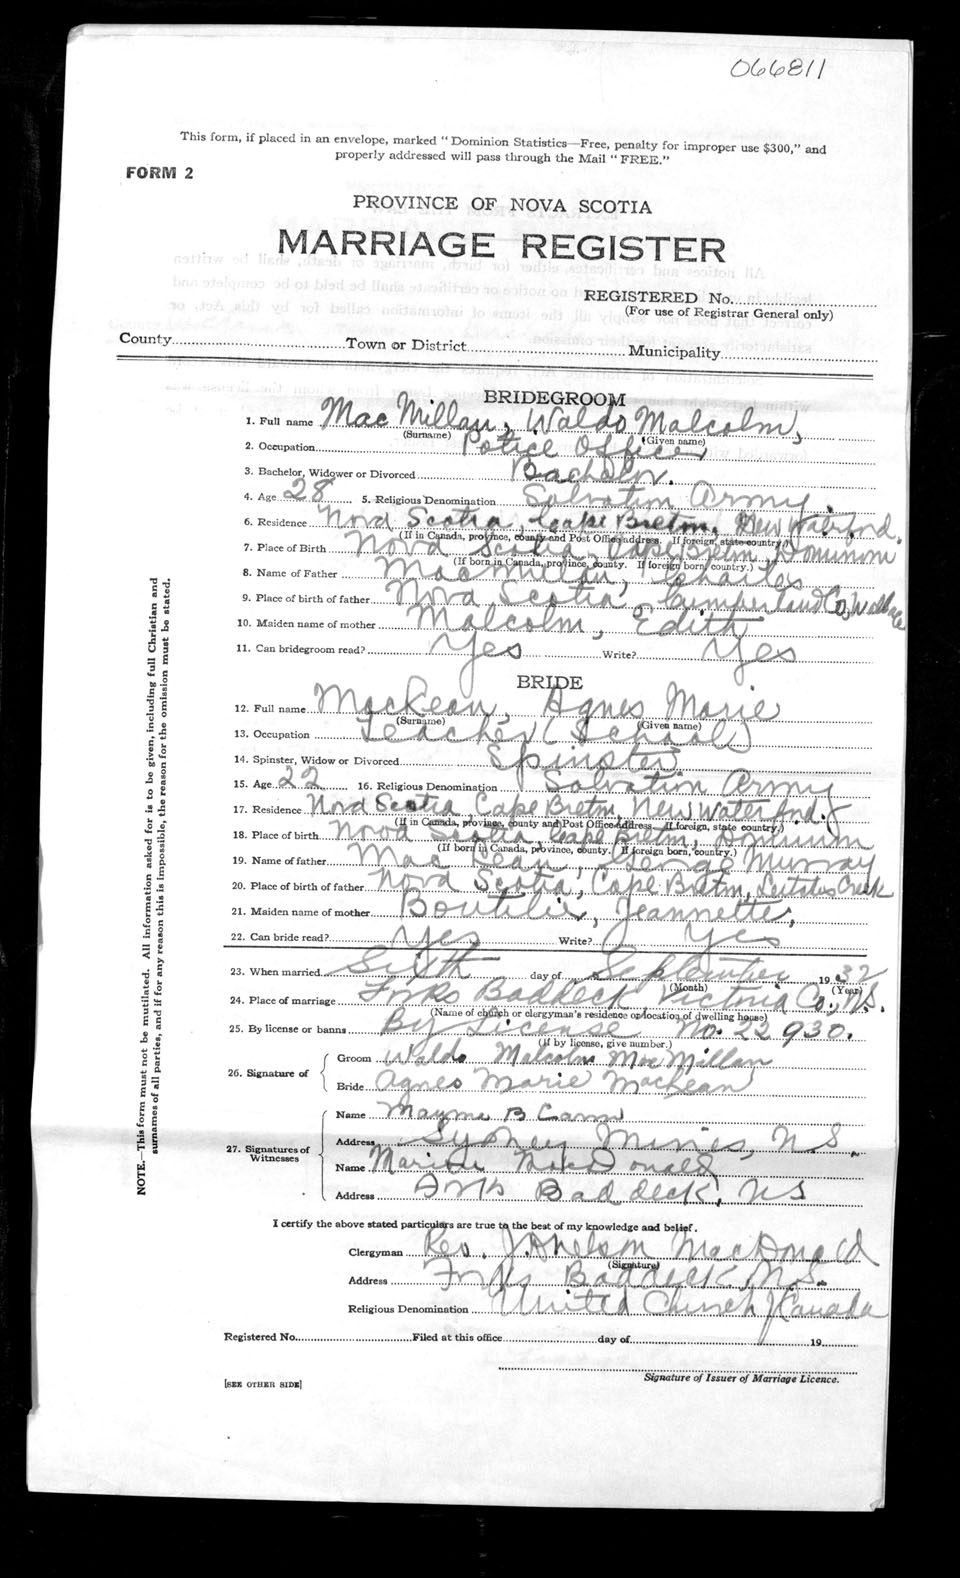 066811
This form, if placed in an envelope, marked "Dominion Statistics—Free, penalty for improper use $300," and
properly addressed will pass through the Mail "FREE."
FORM 2
PROVINCE OF NOVA SCOTIA
MARRIAGE REGISTER
REGISTERED No.
(For use of Registrar General only)
County Town or District Municipality
BRIDEGROOM
1. Full name Mac Millan, Waldo Malcolm,
(Surname) (Given name)
2. Occupation Police Officer
3. Bachelor, Widower or Divorced Bachelor.
4. Age 28 5. Religious Denomination Salvation Army.
6. Residence Nova Scotia, Cape Breton, New Waterford.
(If in Canada, province, county and Post Office address. If foreign, state country.)
7. Place of Birth Nova Scotia, Cape Breton, Dominion
(If born in Canada, province, county. If foreign born, country.)
8. Name of Father MacMillan, Charles
9. Place of birth of father Nova Scotia, Cumberland Co, Wallace
10. Maiden name of mother Malcolm, Edith
11. Can bridegroom read? Yes Write? Yes
BRIDE
12. Full name MacLean, Agnes Marie
(Surname) (Given name)
13. Occupation Teacher (School)
14. Spinster, Widow or Divorced Spinster
15. Age 22 16. Religious Denomination Salvation Army
17. Residence Nova Scotia, Cape Breton, New Waterford.
(If in Canada, province, county and Post Office Address. If foreign, state country.)
18. Place of birth Nova Scotia, Cape Breton, Dominion
(If born in Canada, province, county. If foreign born, country.)
19. Name of father Mac Lean, George Murray
20. Place of birth of father Nova Scotia, Cape Breton, Creek
21. Maiden name of mother Boutilier, Jeannette,
22. Can bride read? Yes Write? Yes
23. When married Sixth day of September 1932
(Month) (Year)
24. Place of marriage Forks Baddeck, Victoria Co., N.S.
(Name of church or clergyman's residence or location of dwelling house)
25. By license or banns By License No. 22930.
(If by license, give number.)
26. Signature of
Groom Waldo Malcolm MacMillan
Bride Agnes Marie MacLean
27. Signatures of Witnesses
Name Mayme B Cann
Address Sydney Mines, N.S.
Name Marion MacDonald
Address Forks Baddeck, N.S
I certify the above stated particulars are true to the best of my knowledge and belief.
Clergyman Rev. MacDonald
(Signature)
Address Forks Baddeck, N.S.
Religious Denomination United Church of Canada
Registered No. Filed at this office day of 19
Signature of Issuer of Marriage Licence.
[SEE OTHER SIDE]
NOTE.—This form must not be mutilated. All information asked for is to be given, including full Christian and
surnames of all parties, and if for any reason this is impossible, the reason for the omission must be stated.